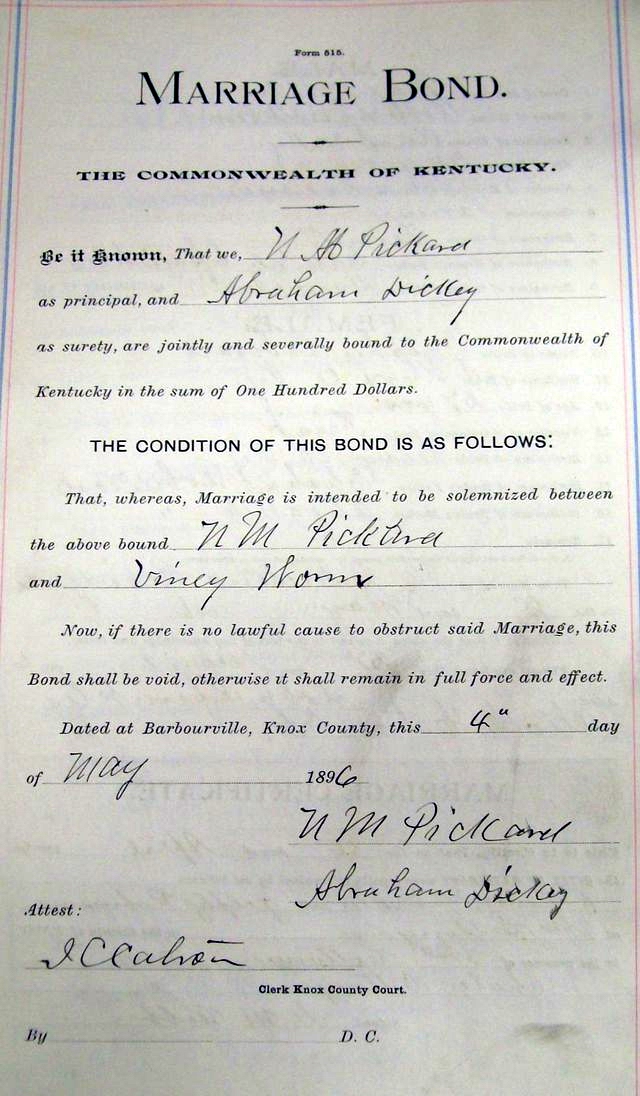 Form 515.
MARRIAGE BOND.
THE COMMONWEALTH OF KENTUCKY.
Be it Known, That we, N M Pickard
as principal, and Abraham Dickey
as surety, are jointly and severally bound to the Commonwealth of
Kentucky in the sum of One Hundred Dollars.
THE CONDITION OF THIS BOND IS AS FOLLOWS:
That, whereas, Marriage is intended to be solemnized between
the above bound N M Pickard
and Viney
Now, if there is no lawful cause to obstruct said Marriage, this
Bond shall be void, otherwise it shall remain in full force and effect.
Dated at Barbourville, Knox County, this 4" day
of May 1896
N M Pickard
Abraham Dickey
Attest:
Clerk Knox County Court.
By D. C.